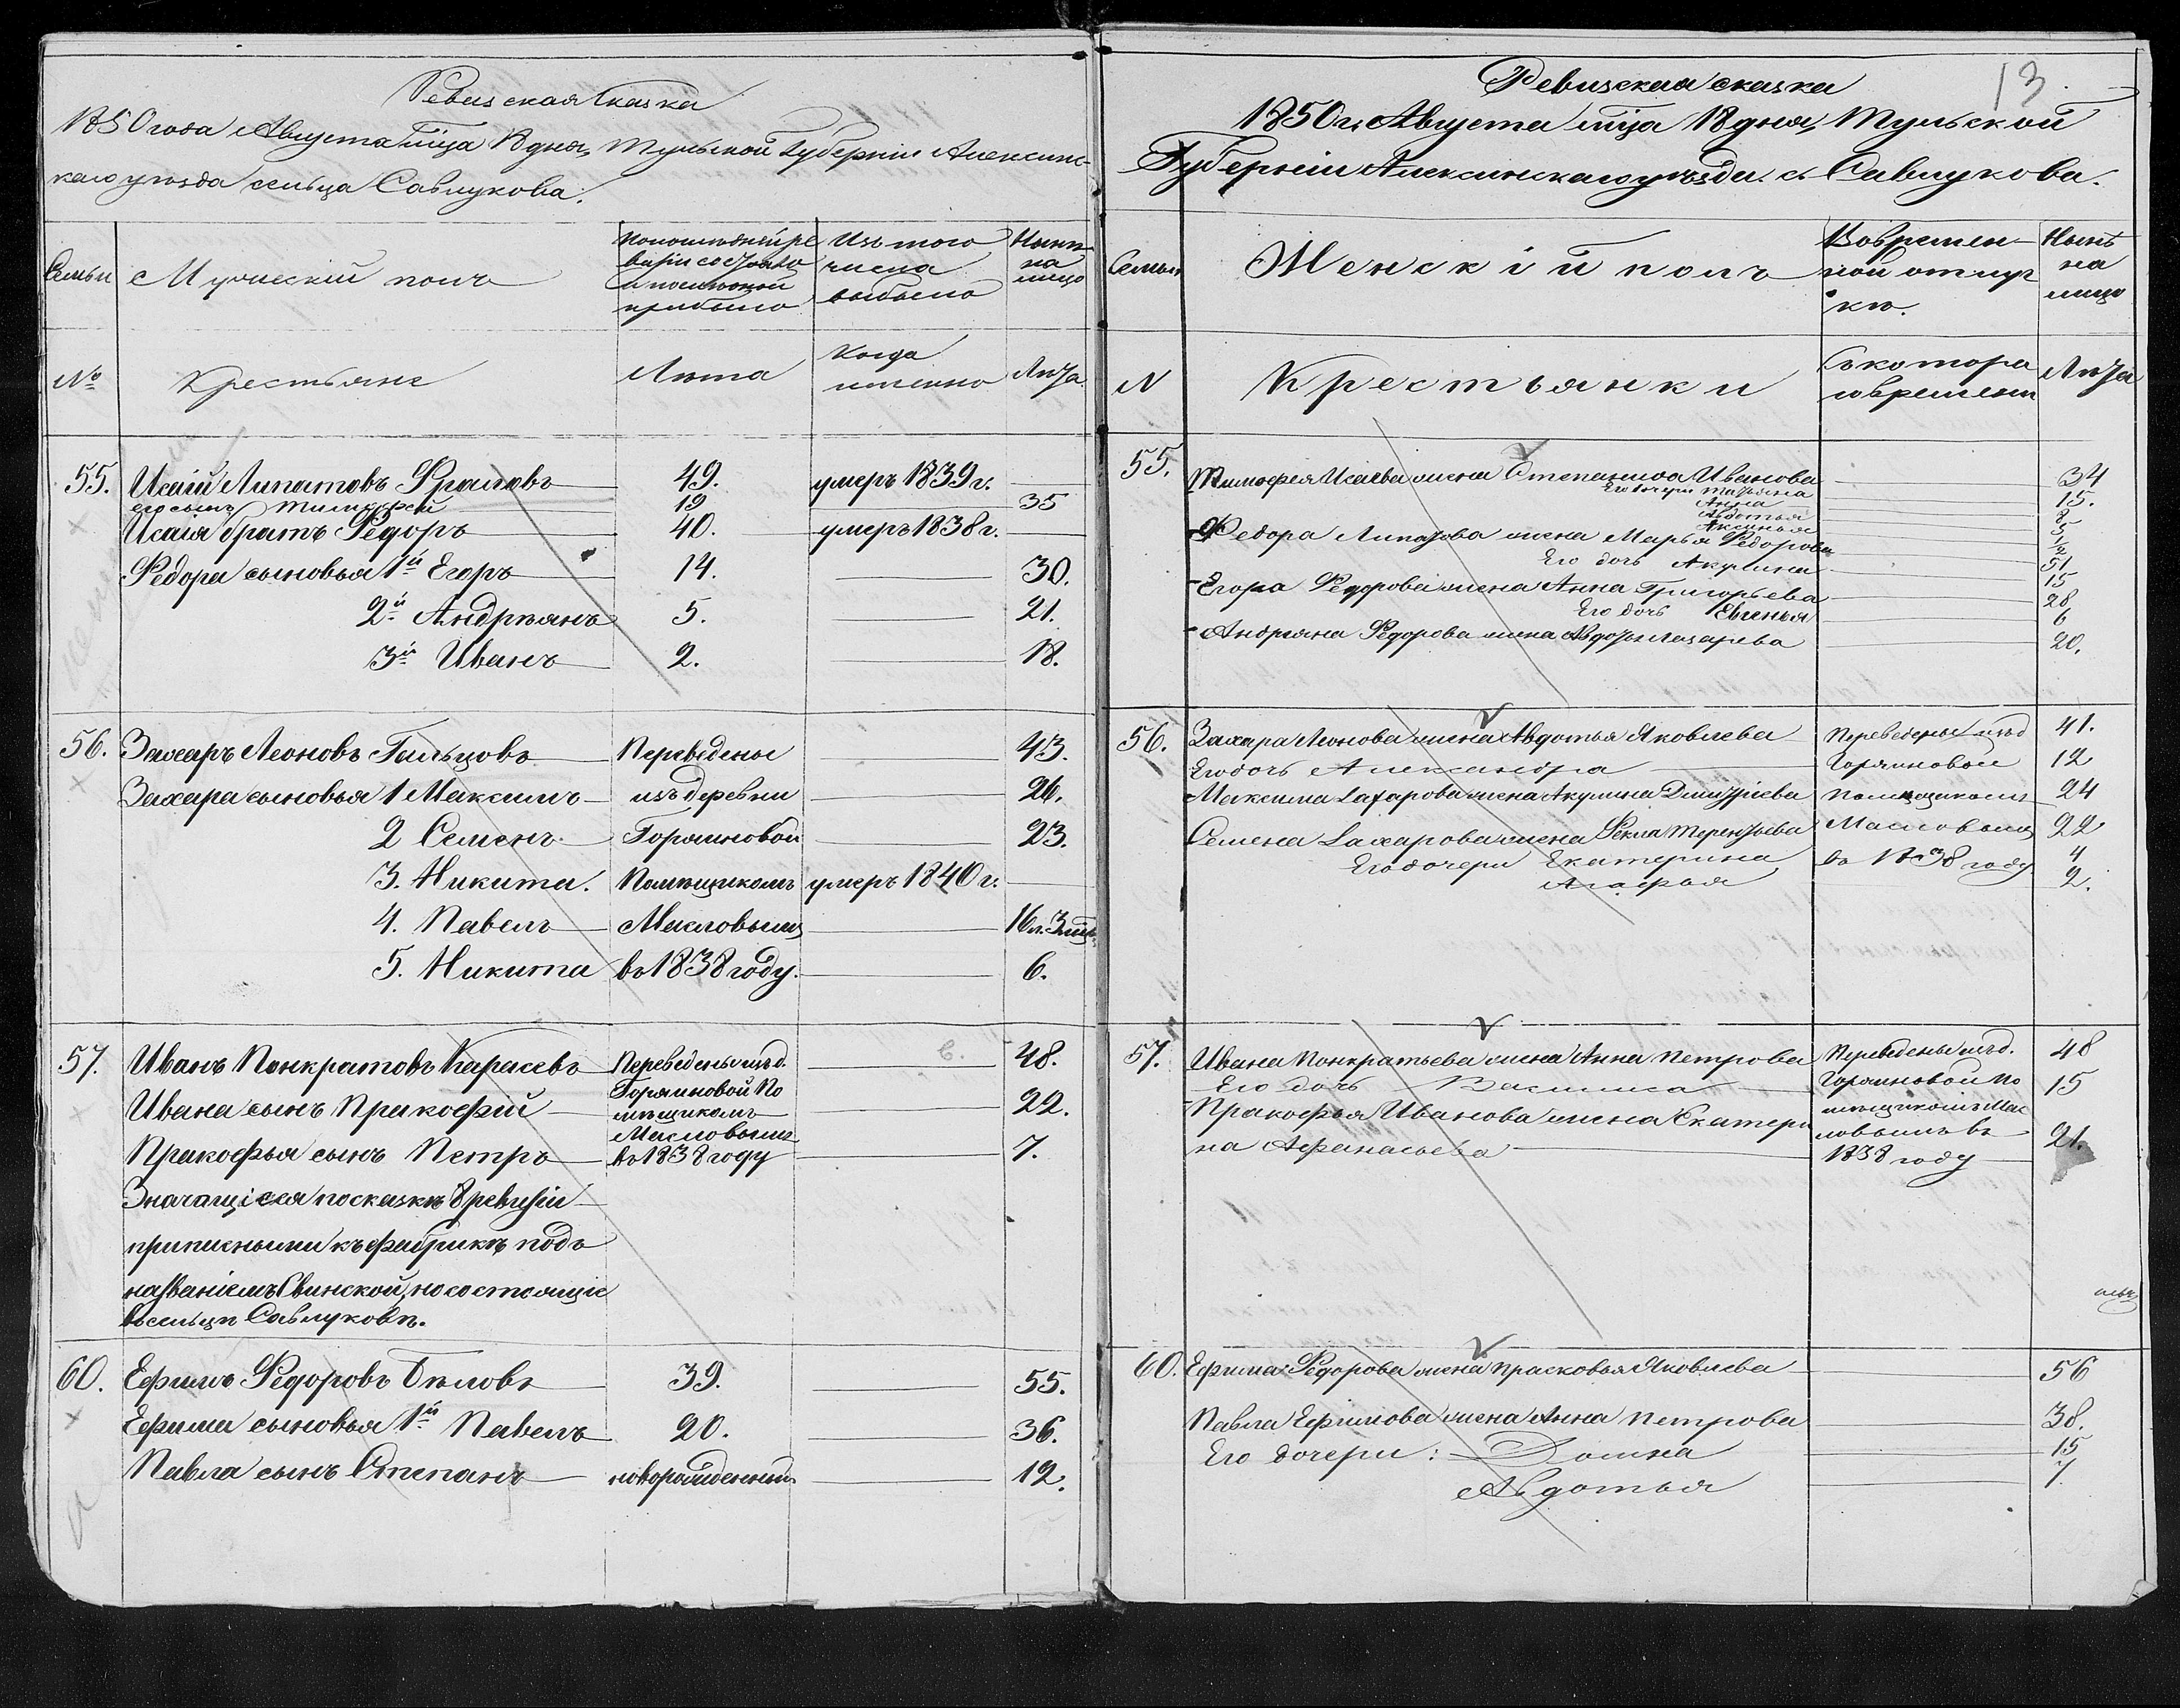 Ревизская сказка
1850 года Августа м̃ца 18 дня, Тульской Губернии Алексинс-
каго уѣзда сельца Савлукова.
Семьи
Мужеский полъ
По последней ре
визіи состояло
и после оной
прибыло
Изъ того
числа
выбыло
Нынѣ
на
лицо
№
Крестьяне
Лѣта
Когда
именно
Лѣта
55. Исаій Липатовъ Фроловъ 49. умеръ 1839 г.
его сынъ Тимофей 19 35
Исаія братъ Федоръ 40. умеръ 1838 г.
Федора сыновья 1й Егоръ 14. 30.
2й Андреянъ 5. 21.
3й Иванъ 2. 18.
56. Захаръ Леоновъ Гальцовъ Переведены 43.
Захара сыновья 1 Максимъ изъ деревни 26.
2 Семенъ Горяиновой 23.
3. Никита. Помѣщикомъ умеръ 1840 г.
4. Павелъ Масловымъ 16 л. 3 мц.
5. Никита въ 1838 году. 6.
57. Иванъ Понкратовъ Карасевъ Переведены изъ д. 48.
Горяиновой По
Ивана сынъ Прокофий мѣщикомъ 22.
Масловымъ
Прокофья сынъ Петръ въ 1838 году 7.
Значащіеся по сказкѣ 8 ревизіи
приписными къ фабрикѣ подъ
названіемъ Свинской, но состоящіе
въ сельцѣ Савлуковѣ.
60. Ефимъ Федоровъ Бѣловъ 39. 55.
Ефима сыновья 1й Павелъ 20. 36.
Павла сынъ Степанъ новорожденный 12.
13
Ревизская сказка
1850 г. Августа м̃ца 18 дня, Тульской
Губерніи Алексинскаго уѣзда с. Савлукова.
Семьи
Женскій полъ
Во времен-
ной отлуч
кѣ.
Нынѣ
на
лицо
N
Крестьянки
Съ котора
го времени
Лѣта
55. Тимофея Исаева жена Степанида Иванова 34
Его дочери Татьяна 15.
Анна 8
Авдотья 5
Аксинья 1/2
Федора Липатова жена Марья Федорова 51
Его дочь Акулина 15
Егора Федорова жена Анна Григорьева 28
Его дочь Евгенья 6
Андреяна Федорова жена Авдотья Лазарева 20.
56. Захара Леонова жена Авдотья Яковлева Переведены изъ д 41.
Его дочь Александра Горяиновой 12
Максима Захарова жена Акулина Дмитріева Помѣщикомъ 24
Семена Захарова жена Фекла Терентьева Масловымъ 22
Его дочери Екатерина въ 1838 году 4
Агафья 2.
57. Ивана Понкратьева жена Анна Петрова Переведены изъ д. 48
Его дочь Василиса Горяиновой По 15
Прокофья Иванова жена Екатери мѣщикомъ Мас
на Афанасьева ловымъ въ 21.
1838 году
60. Ефима Федорова жена Прасковья Яковлева 56
Павла Ефимова жена Анна Петрова 38.
Его дочери: Домна 15
Авдотья 7.